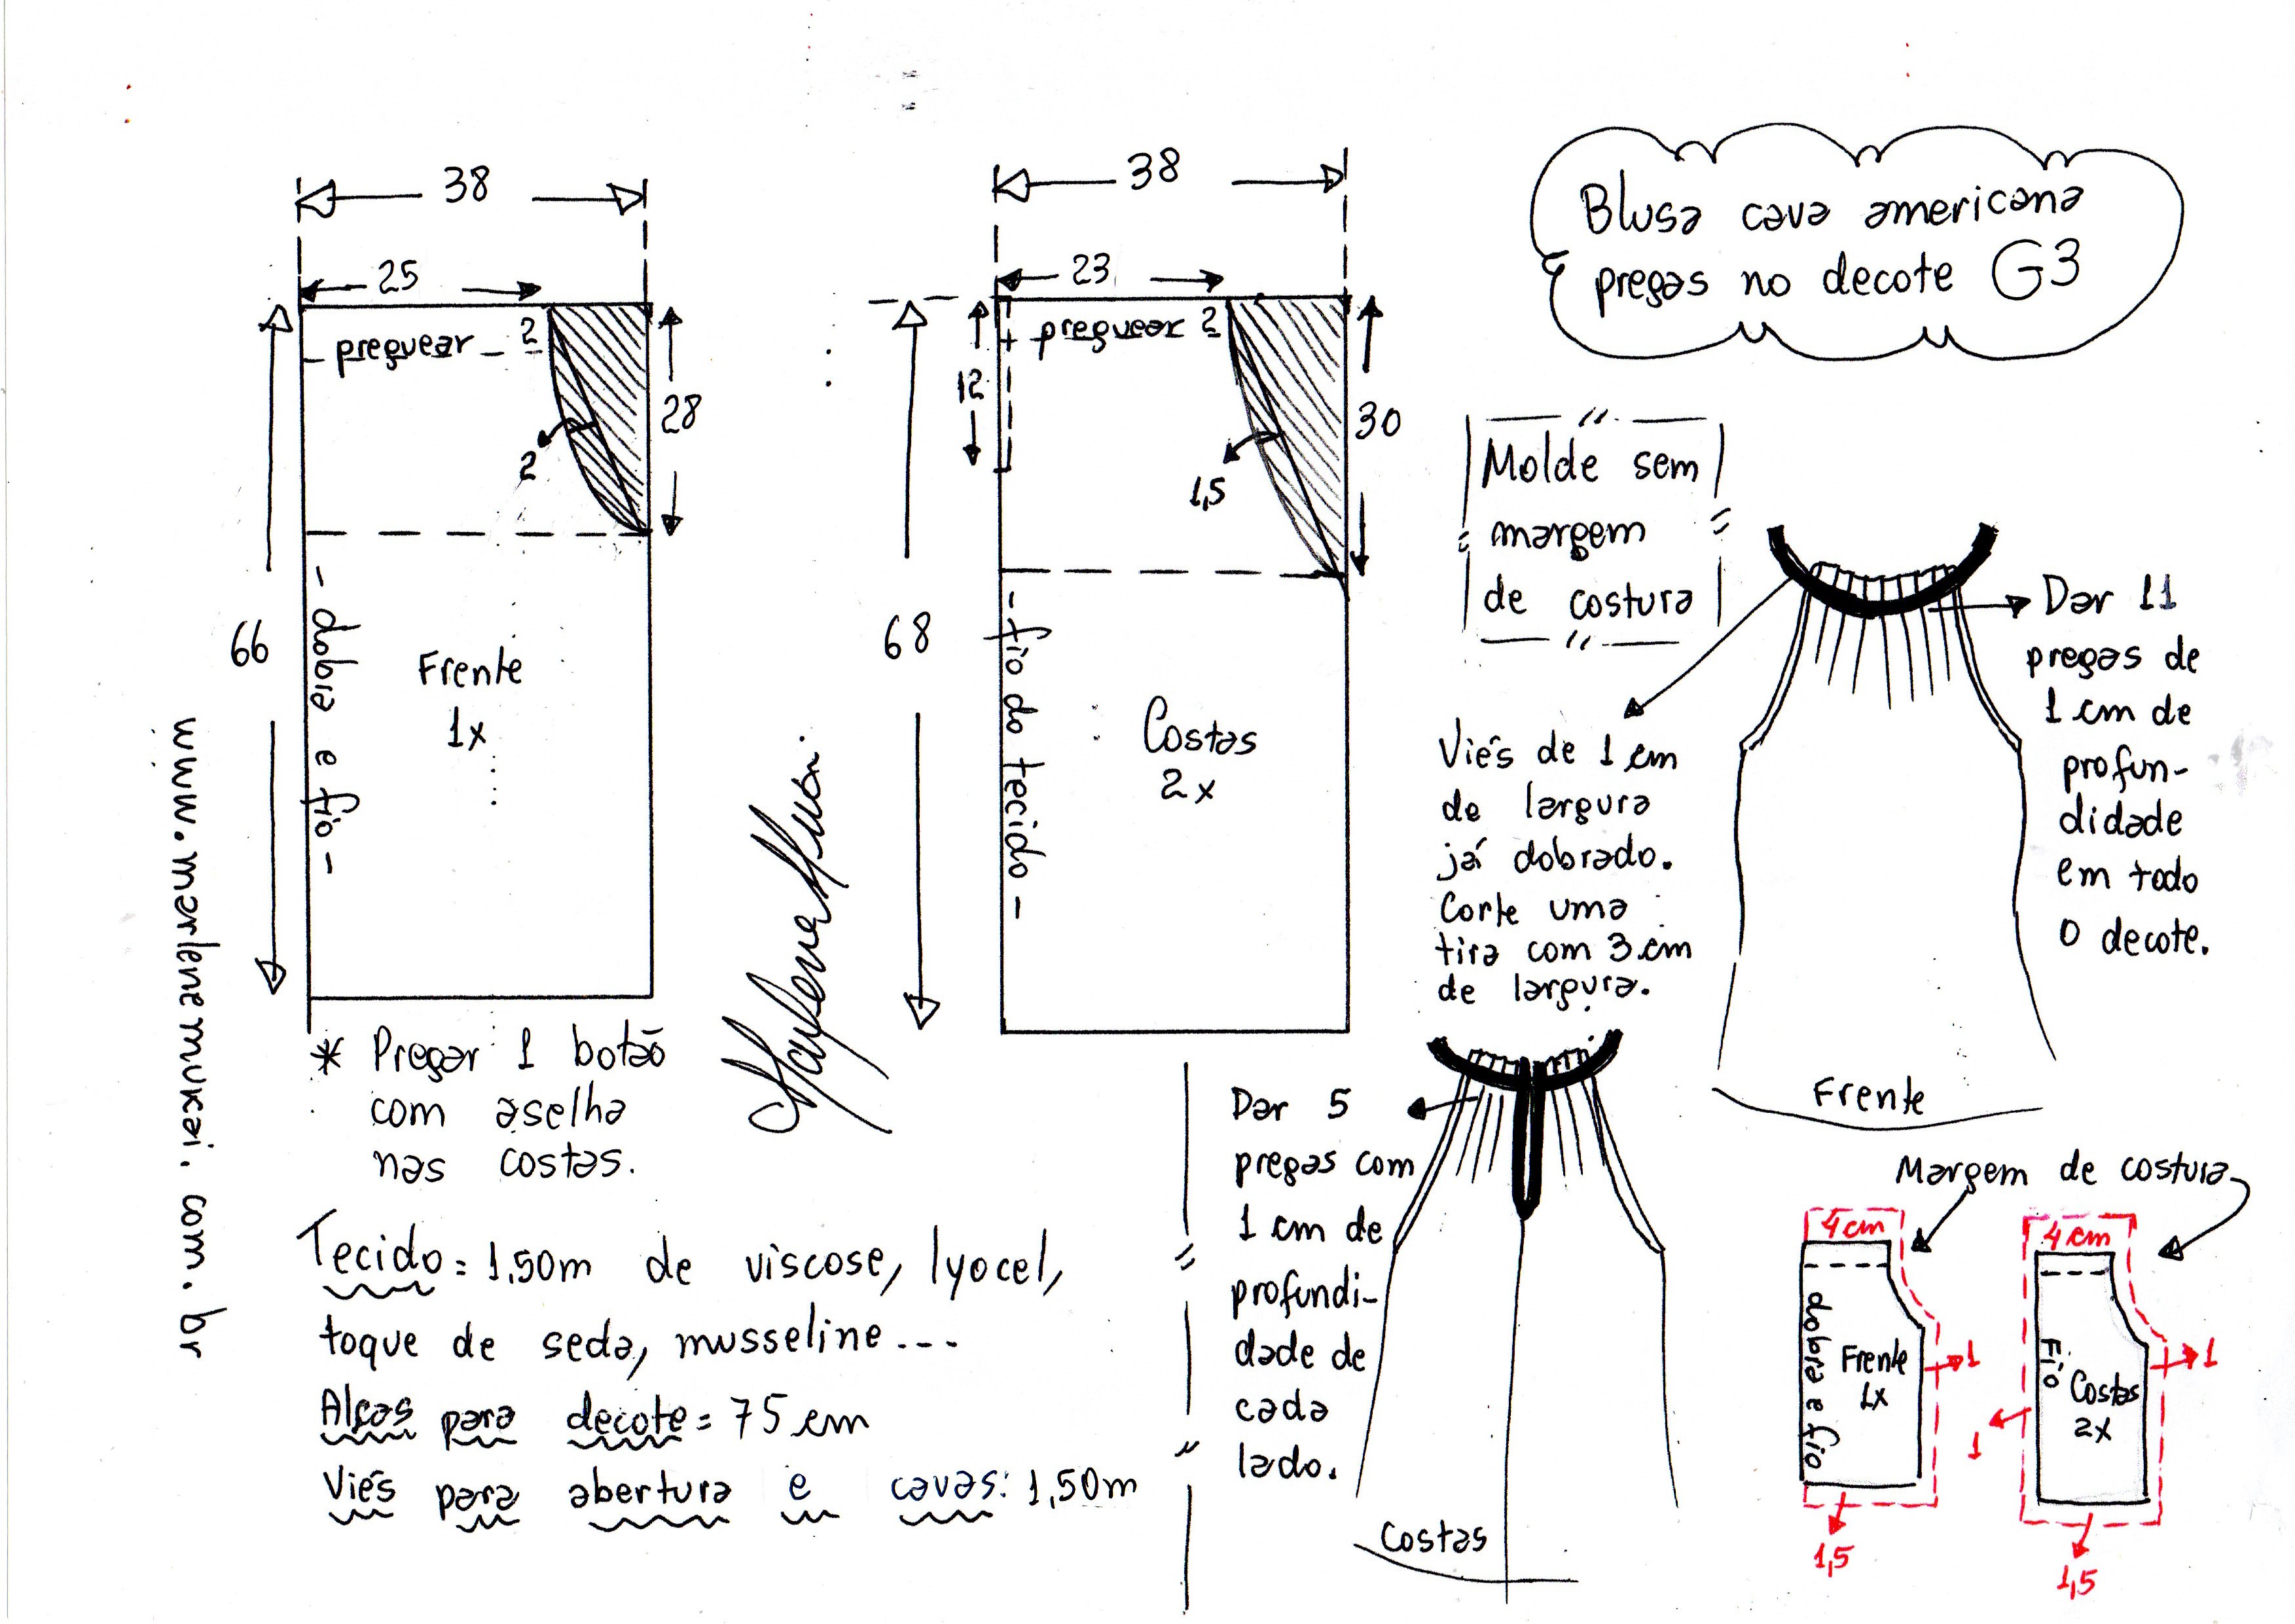 Blusa cava americana
pregas no decote G3
38
25
preguear 2
28
2
66
- dobra e fio -
Frente
1x
38
23
preguear 2
12
30
1,5
68
- fio do tecido -
Costas
2x
Molde sem
margem
de costura
Dar 11
pregas de
1 cm de
profun-
didade
em todo
o decote.
Viés de 1 cm
de largura
já dobrado.
Corte uma
tira com 3 cm
de largura.
Frente
www.marlenemukai.com.br
* Pregar 1 botão
com aselha
nas costas.
Tecido = 1,50m de viscose, lyocel,
toque de seda, musseline...
Alças para decote = 75 cm
Viés para abertura e cavas: 1,50m
Dar 5
pregas com
1 cm de
profundi-
dade de
cada
lado.
Costas
Margem de costura
4cm
dobra e fio
Frente
1x
1
1,5
4cm
Fio
Costas
2x
1
1
1,5